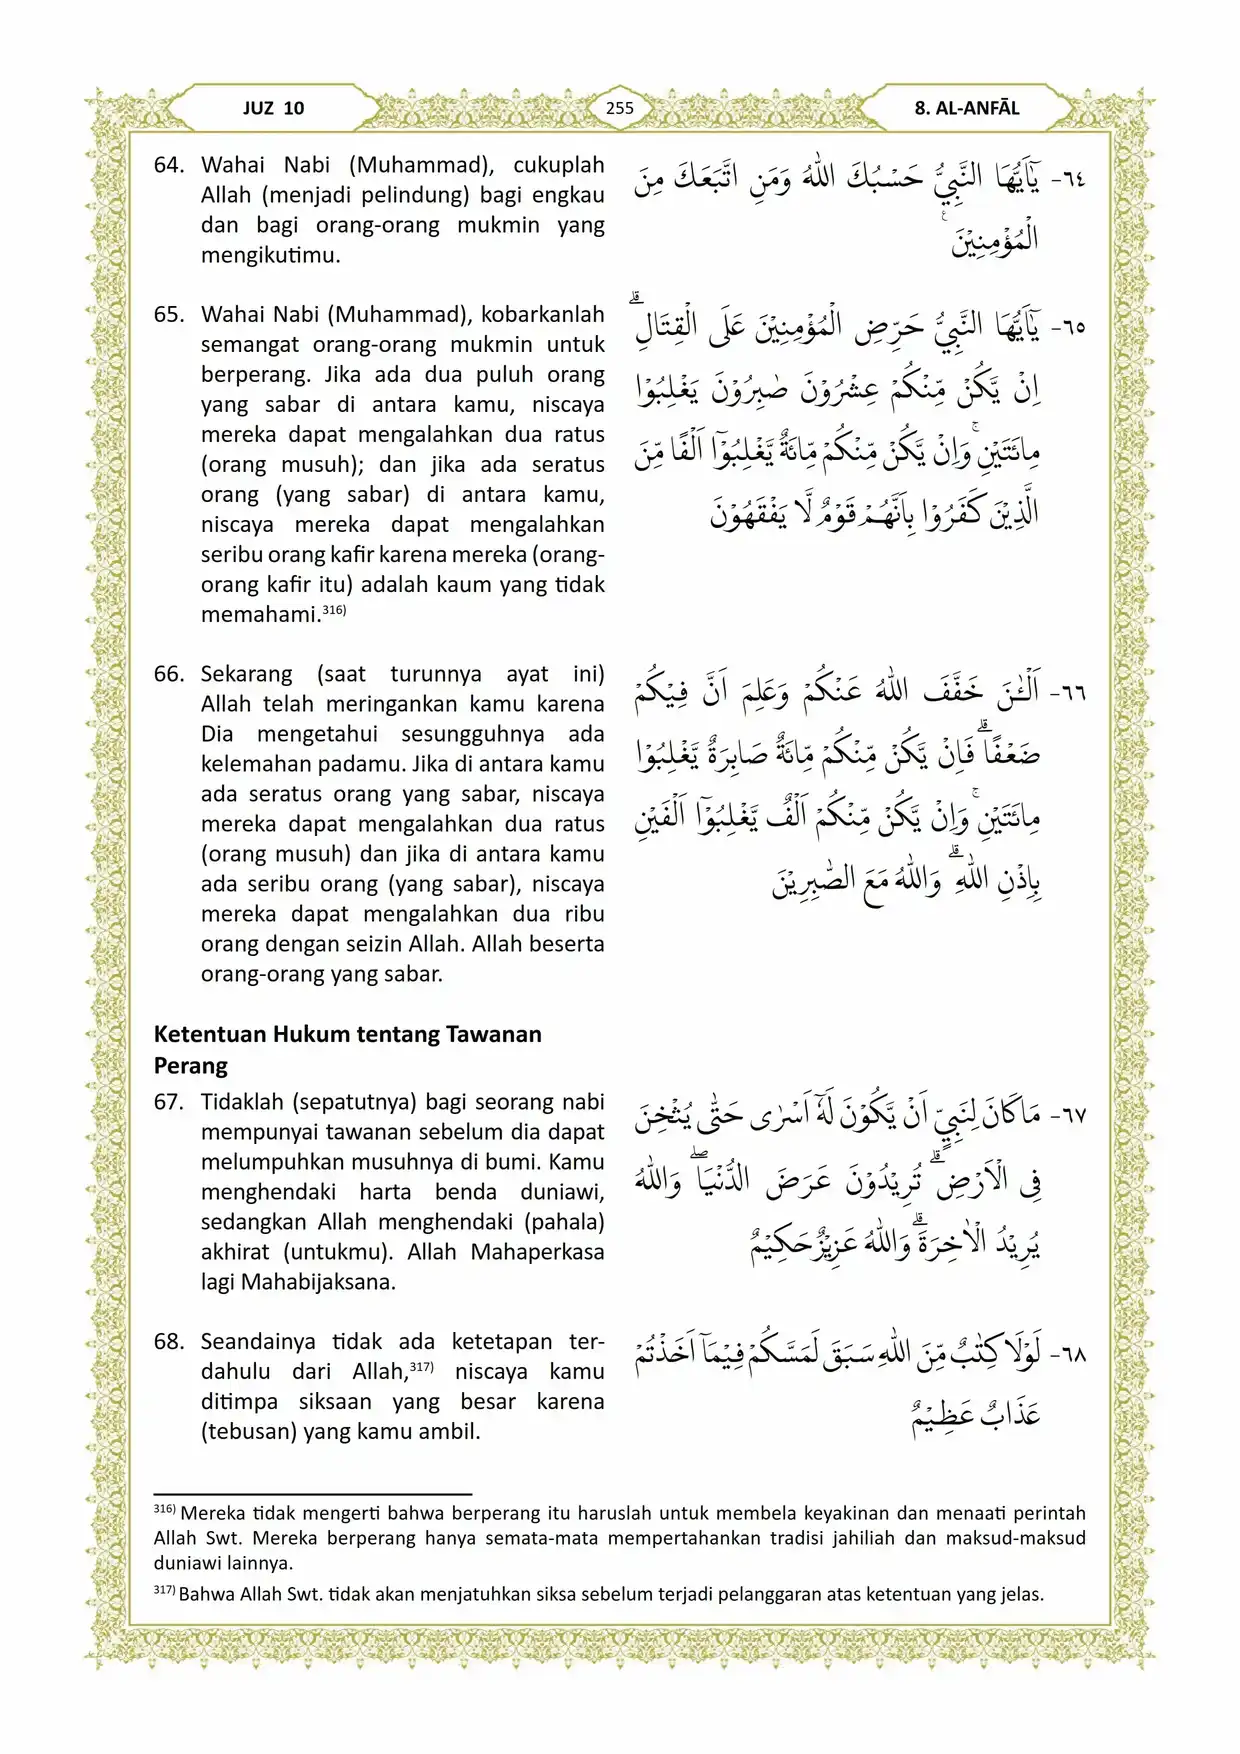 JUZ 10
255
8. AL-ANFĀL
64. Wahai Nabi (Muhammad), cukuplah
Allah (menjadi pelindung) bagi engkau
dan bagi orang-orang mukmin yang
mengikutimu.
٦٤- يٰٓاَيُّهَا النَّبِيُّ حَسْبُكَ اللّٰهُ وَمَنِ اتَّبَعَكَ مِنَ
الْمُؤْمِنِيْنَ ࣖ
65. Wahai Nabi (Muhammad), kobarkanlah
semangat orang-orang mukmin untuk
berperang. Jika ada dua puluh orang
yang sabar di antara kamu, niscaya
mereka dapat mengalahkan dua ratus
(orang musuh); dan jika ada seratus
orang (yang sabar) di antara kamu,
niscaya mereka dapat mengalahkan
seribu orang kafir karena mereka (orang-
orang kafir itu) adalah kaum yang tidak
memahami.316)
٦٥- يٰٓاَيُّهَا النَّبِيُّ حَرِّضِ الْمُؤْمِنِيْنَ عَلَى الْقِتَالِۗ
اِنْ يَّكُنْ مِّنْكُمْ عِشْرُوْنَ صٰبِرُوْنَ يَغْلِبُوْا
مِائَتَيْنِۚ وَاِنْ يَّكُنْ مِّنْكُمْ مِّائَةٌ يَّغْلِبُوْٓا اَلْفًا مِّنَ
الَّذِيْنَ كَفَرُوْا بِاَنَّهُمْ قَوْمٌ لَّا يَفْقَهُوْنَ
66. Sekarang (saat turunnya ayat ini)
Allah telah meringankan kamu karena
Dia mengetahui sesungguhnya ada
kelemahan padamu. Jika di antara kamu
ada seratus orang yang sabar, niscaya
mereka dapat mengalahkan dua ratus
(orang musuh) dan jika di antara kamu
ada seribu orang (yang sabar), niscaya
mereka dapat mengalahkan dua ribu
orang dengan seizin Allah. Allah beserta
orang-orang yang sabar.
٦٦- اَلْـٰٔنَ خَفَّفَ اللّٰهُ عَنْكُمْ وَعَلِمَ اَنَّ فِيْكُمْ
ضَعْفًاۗ فَاِنْ يَّكُنْ مِّنْكُمْ مِّائَةٌ صَابِرَةٌ يَّغْلِبُوْا
مِائَتَيْنِۚ وَاِنْ يَّكُنْ مِّنْكُمْ اَلْفٌ يَّغْلِبُوْٓا اَلْفَيْنِ
بِاِذْنِ اللّٰهِۗ وَاللّٰهُ مَعَ الصّٰبِرِيْنَ
Ketentuan Hukum tentang Tawanan
Perang
67. Tidaklah (sepatutnya) bagi seorang nabi
mempunyai tawanan sebelum dia dapat
melumpuhkan musuhnya di bumi. Kamu
menghendaki harta benda duniawi,
sedangkan Allah menghendaki (pahala)
akhirat (untukmu). Allah Mahaperkasa
lagi Mahabijaksana.
٦٧- مَاكَانَ لِنَبِيٍّ اَنْ يَّكُوْنَ لَهٗٓ اَسْرٰى حَتّٰى يُثْخِنَ
فِى الْاَرْضِۗ تُرِيْدُوْنَ عَرَضَ الدُّنْيَاۖ وَاللّٰهُ
يُرِيْدُ الْاٰخِرَةَۗ وَاللّٰهُ عَزِيْزٌحَكِيْمٌ
68. Seandainya tidak ada ketetapan ter-
dahulu dari Allah,317) niscaya kamu
ditimpa siksaan yang besar karena
(tebusan) yang kamu ambil.
٦٨- لَوْلَا كِتٰبٌ مِّنَ اللّٰهِ سَبَقَ لَمَسَّكُمْ فِيْمَآ اَخَذْتُمْ
عَذَابٌ عَظِيْمٌ
316) Mereka tidak mengerti bahwa berperang itu haruslah untuk membela keyakinan dan menaati perintah
Allah Swt. Mereka berperang hanya semata-mata mempertahankan tradisi jahiliah dan maksud-maksud
duniawi lainnya.
317) Bahwa Allah Swt. tidak akan menjatuhkan siksa sebelum terjadi pelanggaran atas ketentuan yang jelas.